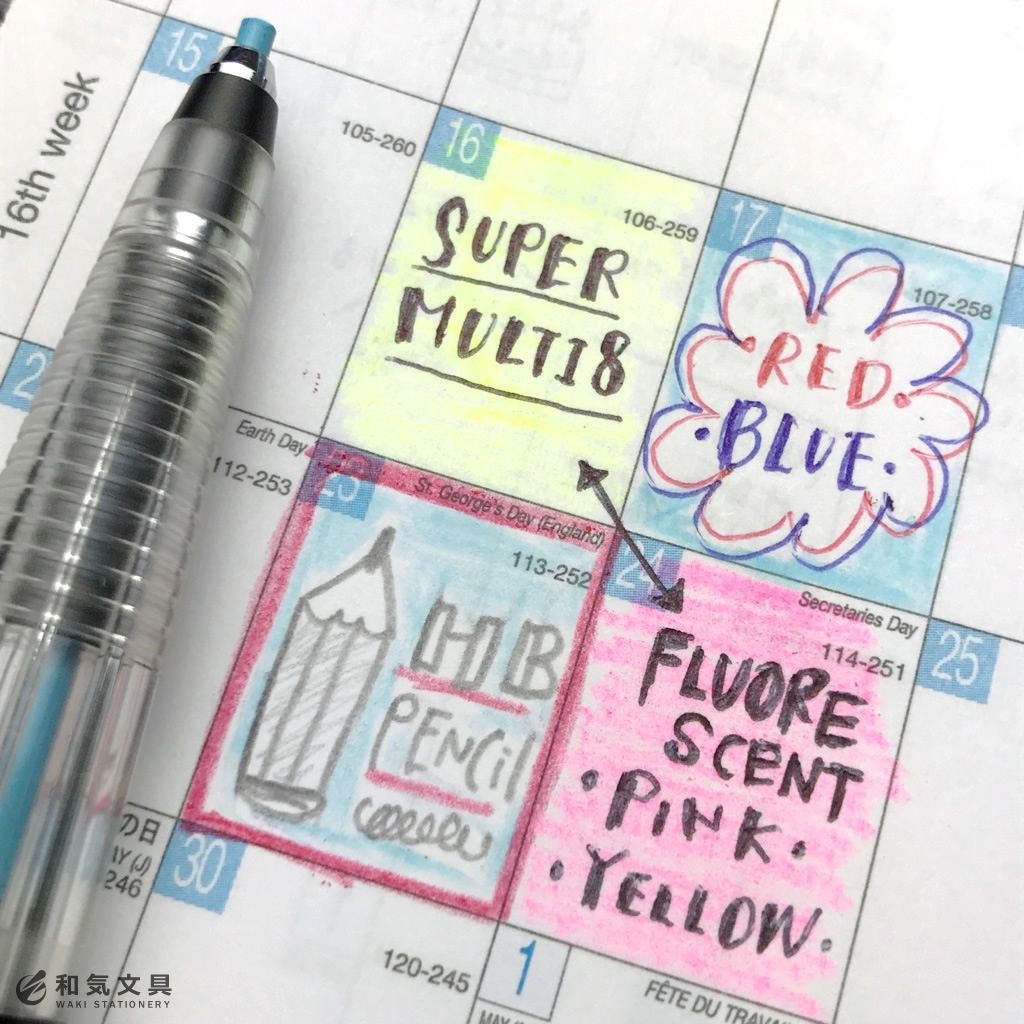 16th week
15
105-260
16
106-259
SUPER
MULTI8
17
107-258
·RED.
·BLUE.
Earth Day
112-253
23
St. George's Day (England)
113-252
HB
PENCil
24
Secretaries Day
114-251
FLUORE
SCENT
·PINK.
·YELLOW.
25
の日
AY (J)
246
30
120-245
1
FÊTE DU TRAVAI
和気文具
WAKI STATIONERY